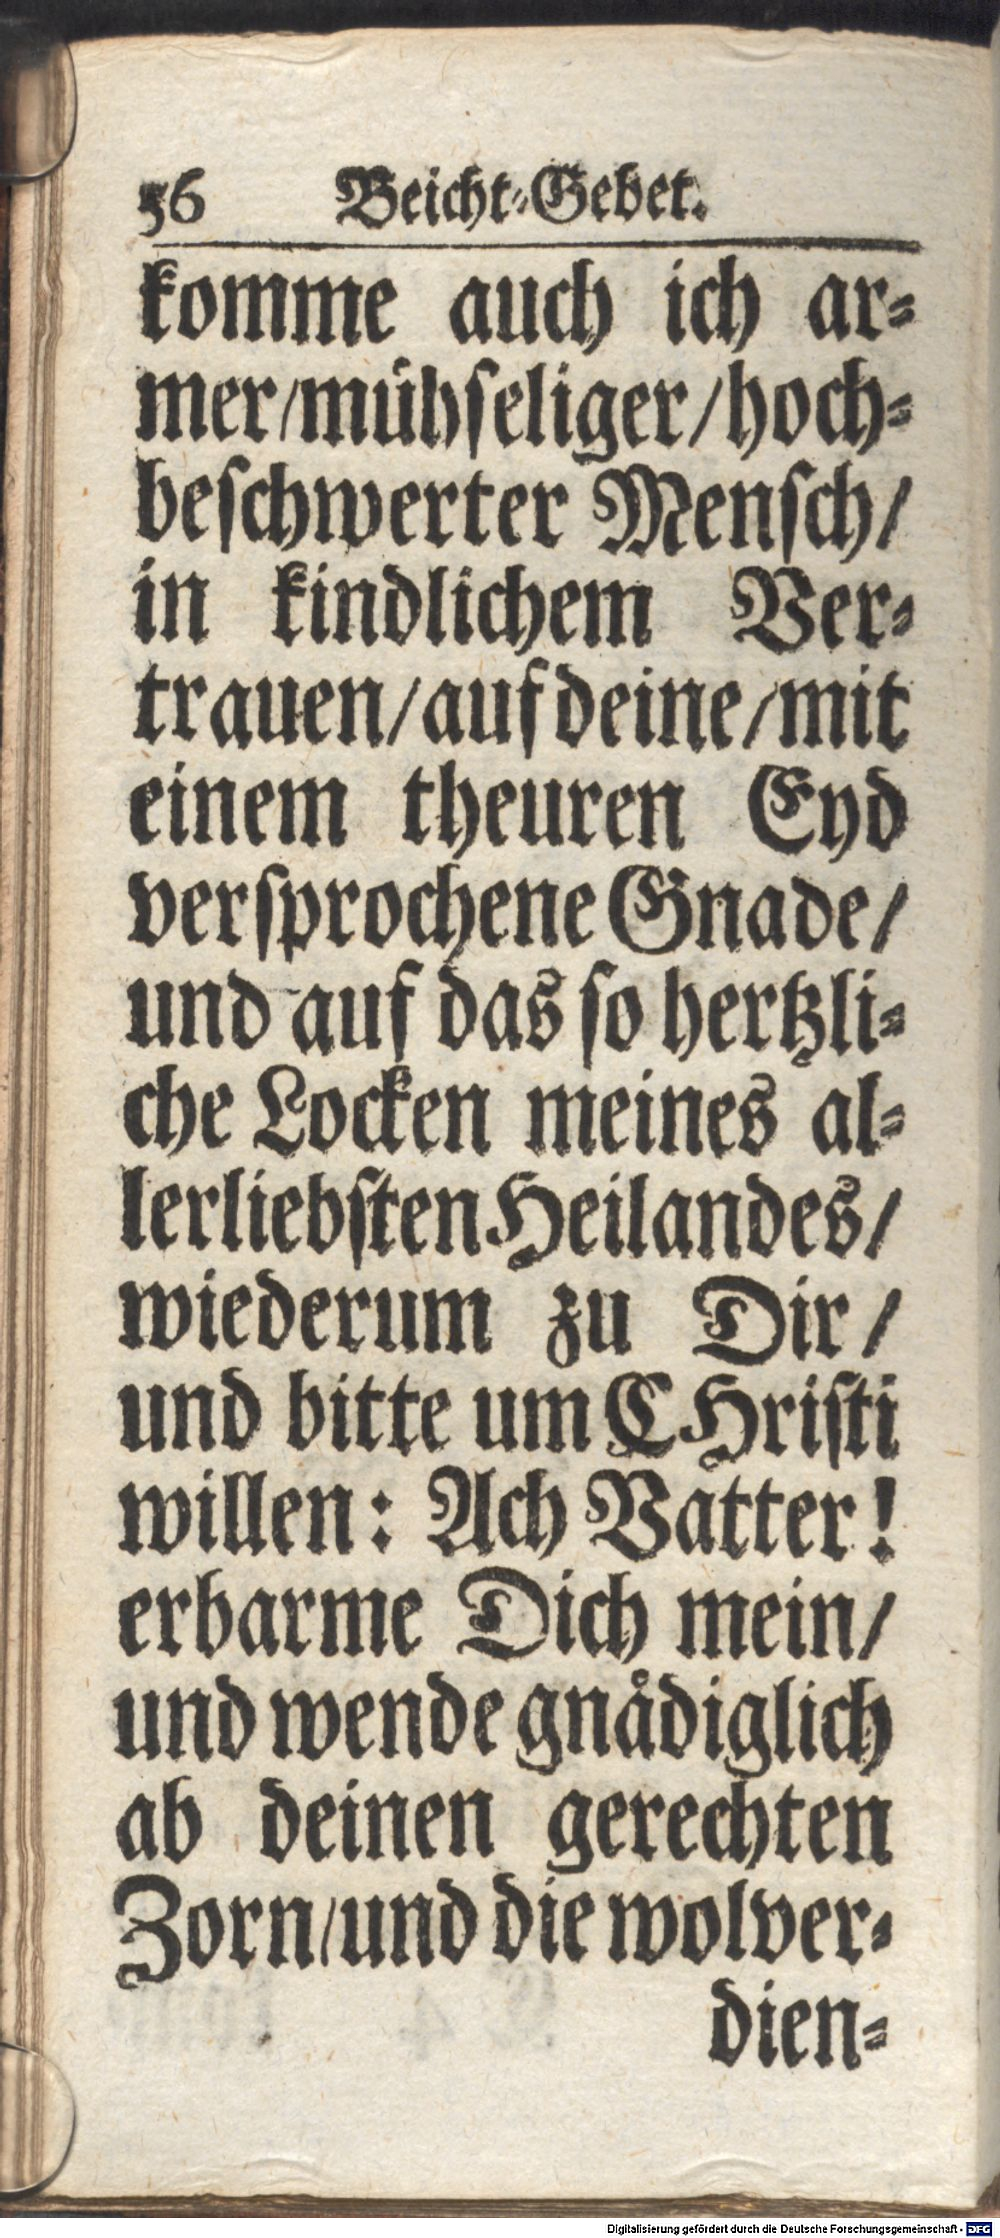 56 Beicht-Gebet.
komme auch ich ar-
mer/mühseliger/hoch-
beschwerter Mensch/
in kindlichem Ver-
trauen/auf deine/mit
einem theuren Eyd
versprochene Gnade/
und auf das so hertzli-
che Locken meines al-
lerliebsten Heilandes/
wiederum zu Dir/
und bitte um CHristi
willen: Ach Vatter!
erbarme Dich mein/
und wende gnädiglich
ab deinen gerechten
Zorn/und die wolver-
dien-
Digitalisierung gefördert durch die Deutsche Forschungsgemeinschaft - DFG